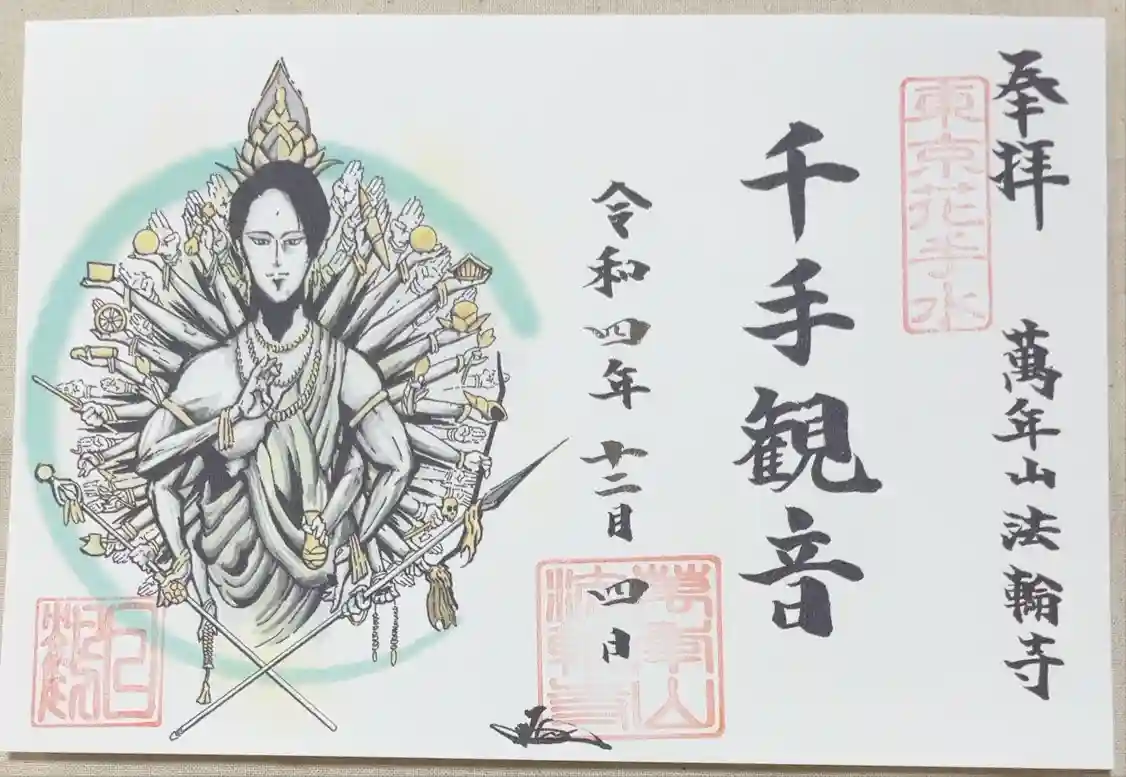 奉拝 萬年山法輪寺
東京花手水
千手観音
令和四年 十二月 四日
萬年山
法輪寺